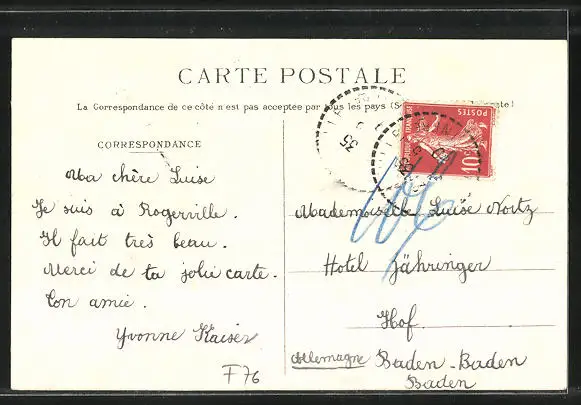 CARTE POSTALE
La Correspondance de ce côté n'est pas acceptée par tous les pays (S
CORRESPONDANCE
Ma chère Luise
Je suis à Rogerville.
Il fait très beau.
Merci de ta jolie carte.
Ton amie.
Yvonne Kaiser
F76
POSTES
10
Mademoiselle Luise Nortz
Hotel Zähringer
Hof.
Allemagne Baden-Baden
Baden